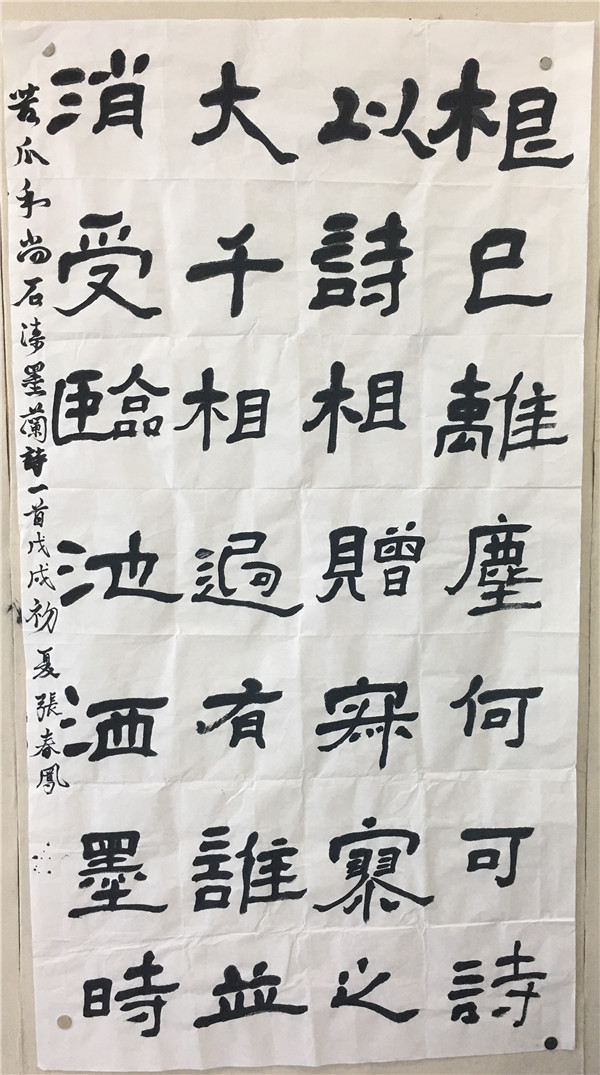 根已離塵何可詩
以詩相贈寂寥之
大千相過有誰並
消受臨池洒墨時
苦瓜和尚石濤墨蘭詩一首戊戌初夏張春鳳